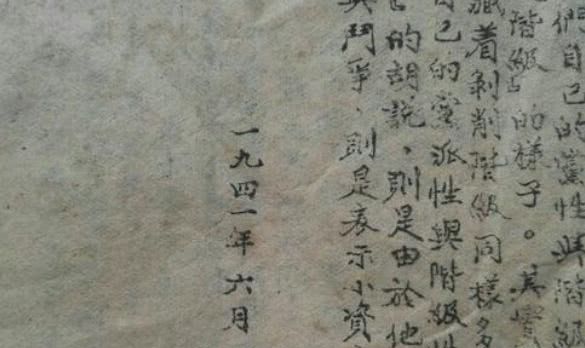 們自己的黨性與階級
階級」的樣子。其實
藏着剝削階級同樣多
自己的黨派性與階級性
的胡說，則是由於他
鬥爭，則是表示小資
一九四一年六月